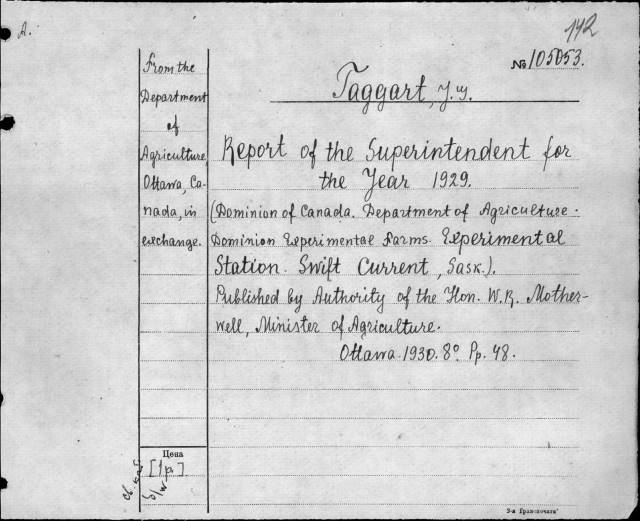 A.
142
№ 105053.
Taggart, J. G.
From the
Department
of
Agriculture,
Ottawa, Ca-
nada, in
exchange.
Report of the Superintendent for
the Year 1929.
(Dominion of Canada. Department of Agriculture.
Dominion Experimental Farms. Experimental
Station. Swift Current, Sask.).
Published by Authority of the Hon. W. R. Mother-
well, Minister of Agriculture.
Ottawa. 1930. 8° Pp. 48.
Цена
[1 р.]
3-я Гравопечатн